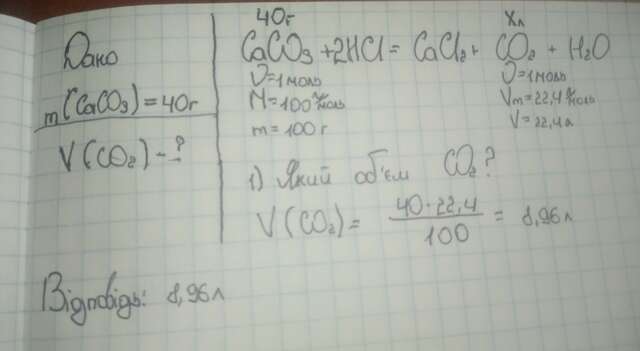 Дано
m(CaCO3)=40г
V(CO2)-?
40г Xл
CaCO3+2HCl=CaCl2+CO2+H2O
ν=1моль ν=1моль
M=100г/моль Vm=22,4л/моль
m=100г V=22,4л
1) Який об'єм CO2?
V(CO2)= 40·22,4/100 = 8,96л
Відповідь: 8,96л